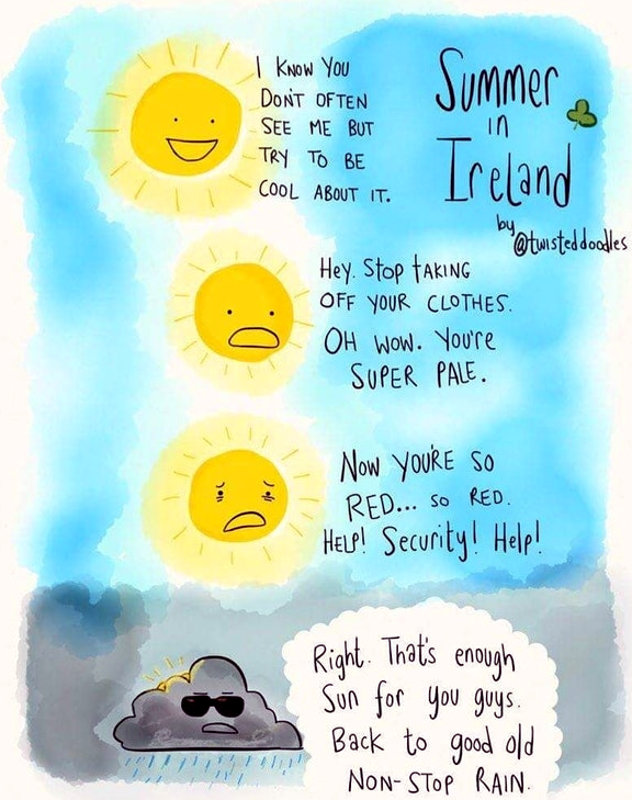 Summer
in
Ireland
by
@twisteddoodles
I KNOW YOU
DON'T OFTEN
SEE ME BUT
TRY TO BE
COOL ABOUT IT.
Hey. Stop TAKING
OFF YOUR CLOTHES.
OH WOW. YOU'RE
SUPER PALE.
NOW YOU'RE SO
RED... SO RED.
HELP! Security! Help!
Right. That's enough
Sun for you guys.
Back to good old
NON-STOP RAIN.